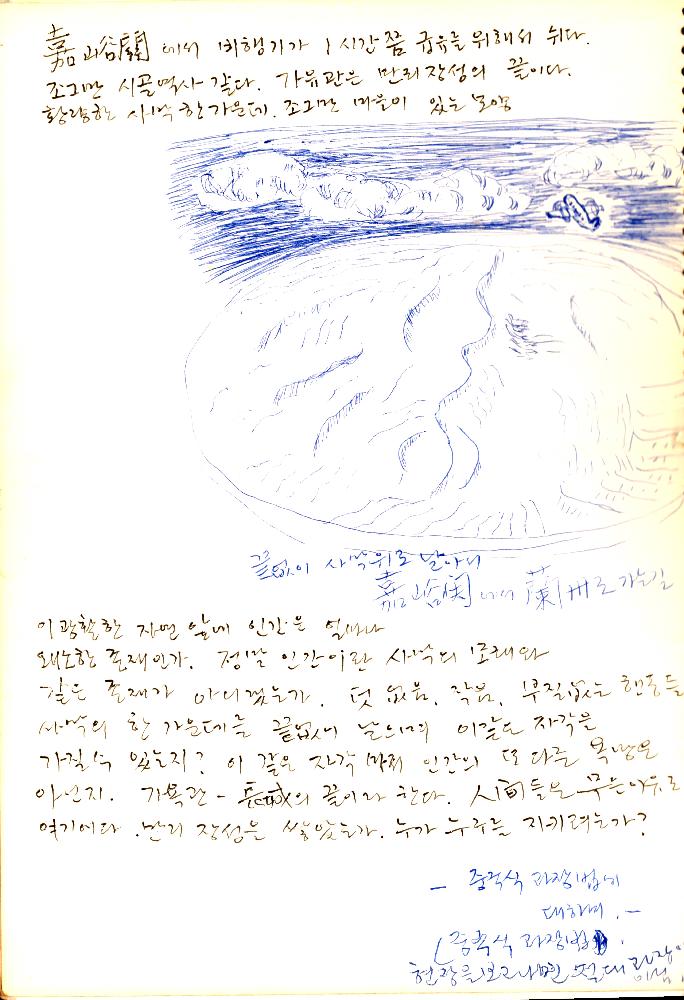 嘉峪關 에서 비행기가 1시간쯤 급유를 위해서 쉬다.
조그만 시골역사 같다. 가유관은 만리장성의 끝이다.
황량한 사막 한가운데. 조그만 마을이 있는 모양
끝없이 사막위로 날아서
嘉峪関에서 蘭州로 가는길
이 광활한 자연 앞에 인간은 얼마나
왜소한 존재인가. 정말 인간이란 사막의 모래와
같은 존재가 아니겠는가. 덧없음, 작음, 부질없는 행동들
사막의 한 가운데를 끝없이 날으며 이같은 자각을
가질수 있는지? 이 같은 자각 마저 인간의 또 다른 욕망은
아닌지. 가욕관 - 長城의 끝이라 한다. 人間들은 무슨이유로
여기에다 만리 장성을 쌓았는가. 누가 누구를 지키려는가?
- 중국식 과장법에
대하여. -
(중국식 과장법.
현장을 보고나면 절대 과장이